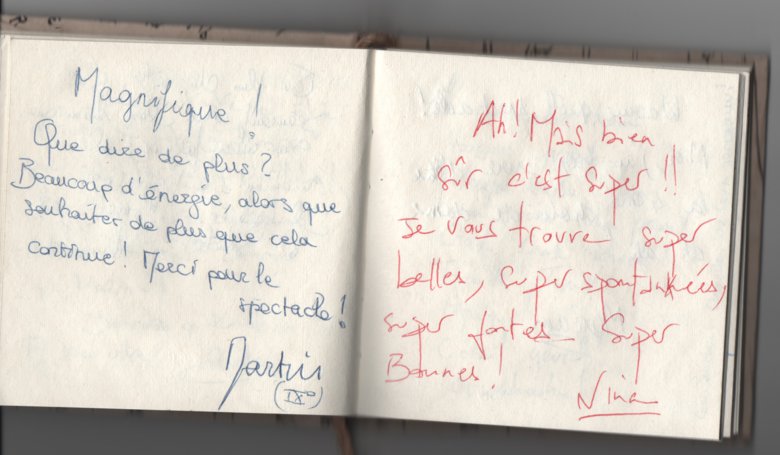 Magnifique !
Que dire de plus ?
Beaucoup d'énergie, alors que
souhaiter de plus que cela
continue ! Merci pour le
spectacle !
Martin
(IX°)
Ah ! Mais bien
sûr c'est super !!
Je vous trouve super
belles, super spontanées,
super fortes Super
Bonnes !
Nina